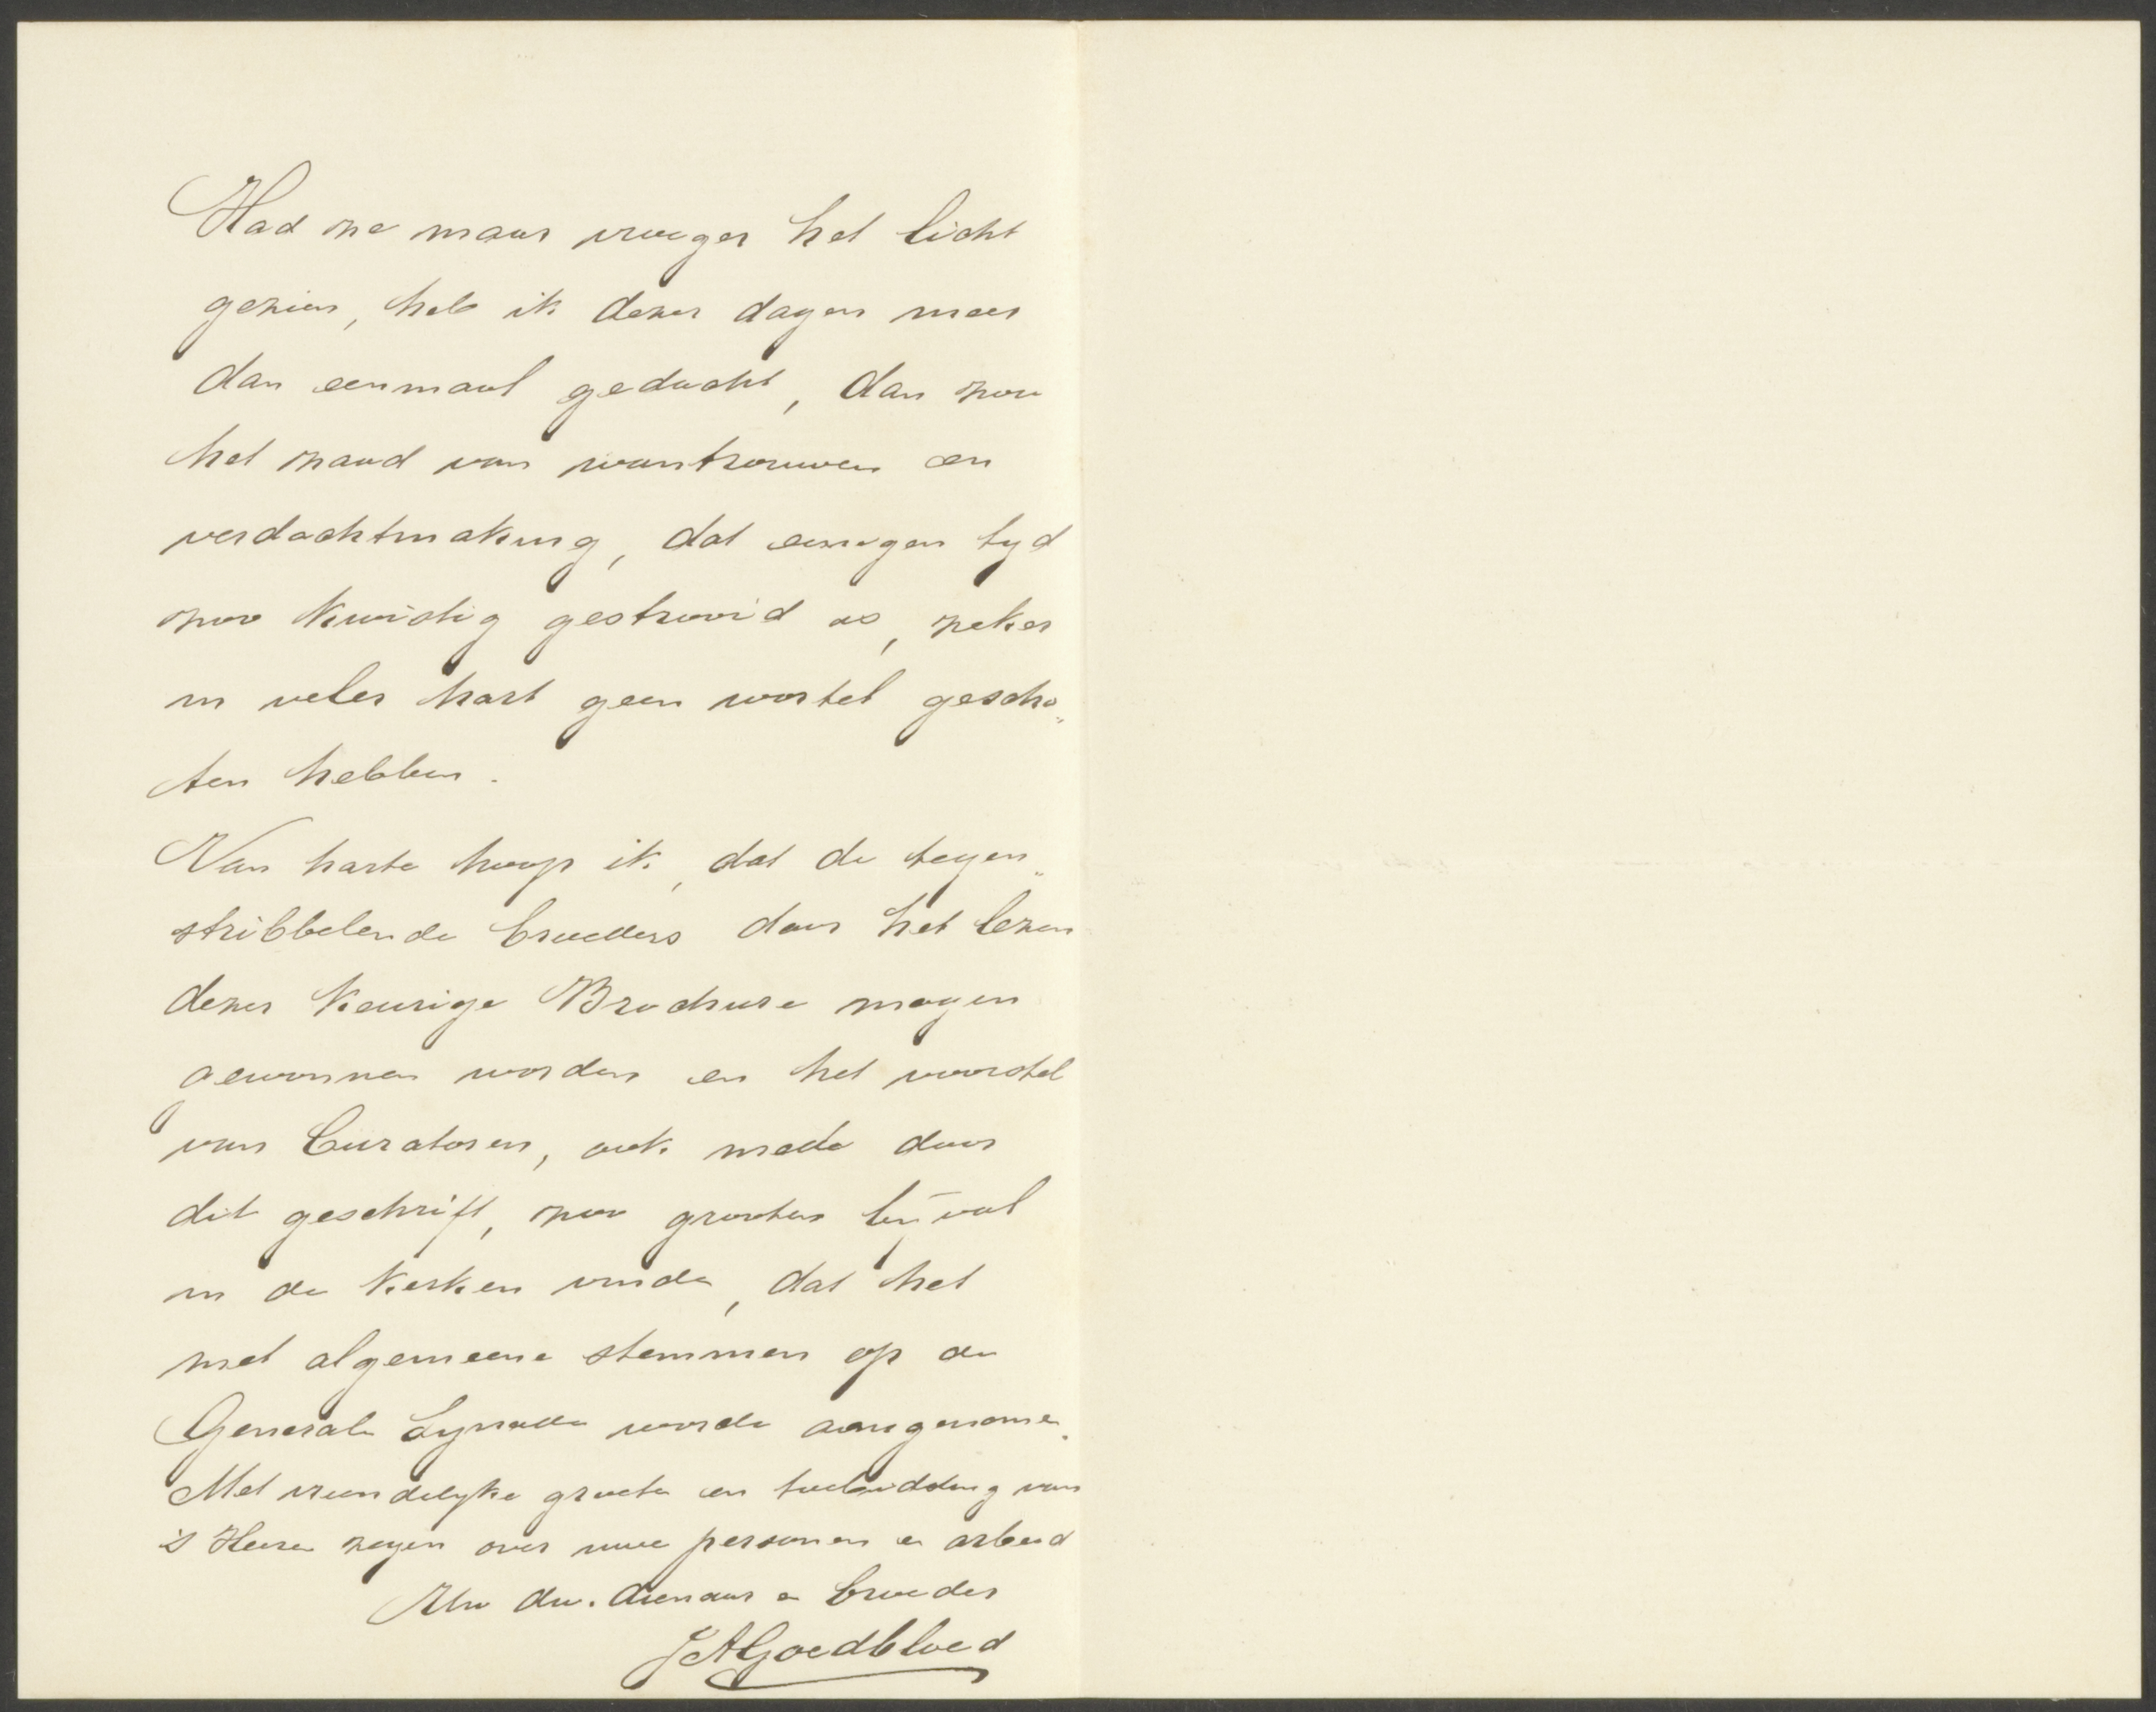 Had ze maar vroeger het licht
gezien, heb ik dezer dagen meer
dan eenmaal gedacht, dan zou
het zaad van wantrouwen en
verdachtmaking, dat eenigen tyd
zoo kwistig gestrooid is, zeker
in veler hart geen wortel gescho„
ten hebben.
Van harte hoop ik, dat de tegen„
stribbelende broeders door het lezen
dezer keurige Brochure mogen
gewonnen worden en het voorstel
van Curatoren, ook mede door
dit geschrift, zoo grooten bijval
in de kerken vinde, dat het
met algemeene stemmen op de
Generale Synode worde aangenomen.
Met vriendelyke groete en toebidding van
's Heeren zegen over uwe personen en arbeid
Uw dw. dienaar en broeder
JAGoedbloed